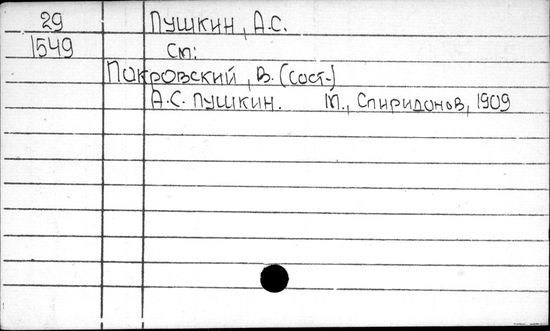 29 Пушкин, А.С.
1549 См:
Покровский, В. (сост.)
А.С. Пушкин. М., Спиридонов, 1909